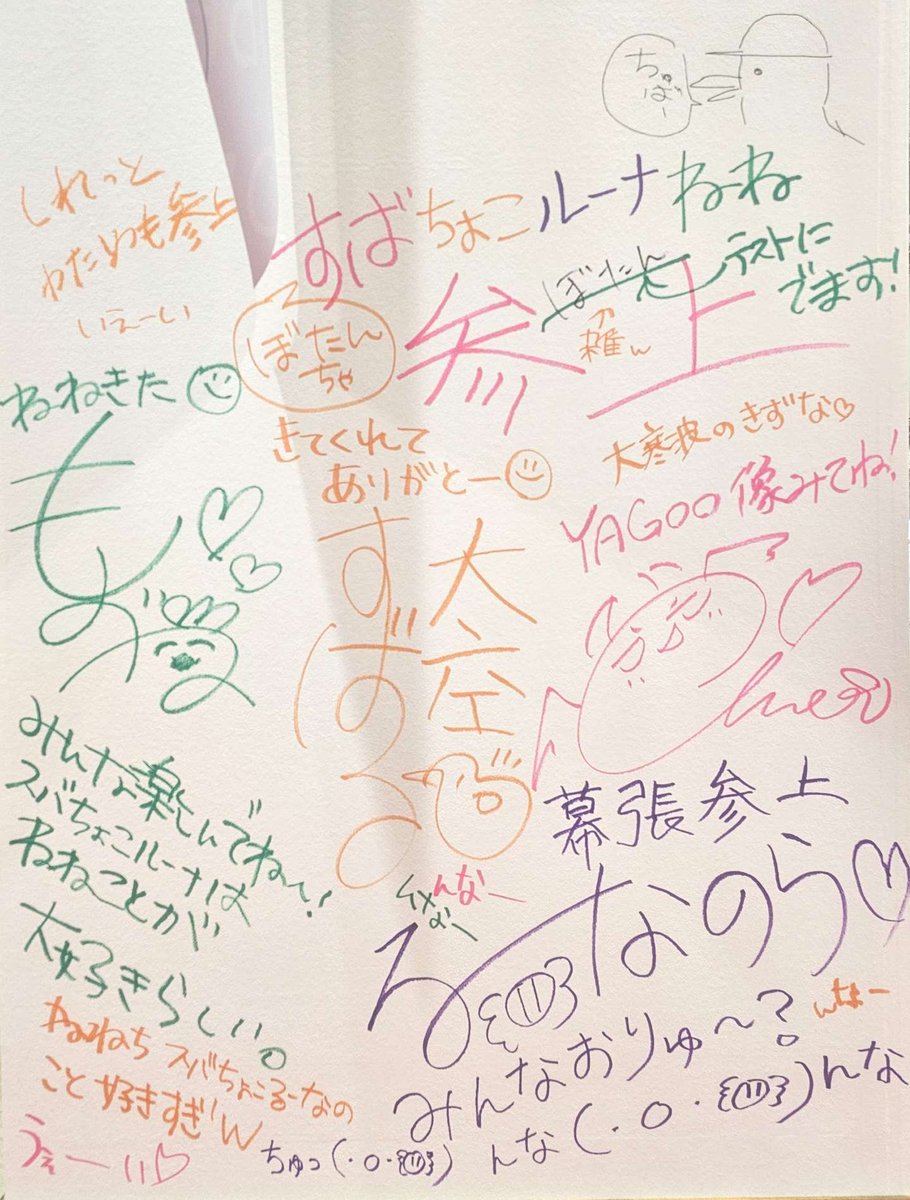 ちゅばー
しれっと
わためも参上
いえーい
すばちょこルーナねね
参上
ぼたん
↑雑w
テストに
でます!
ぼたん
ちゃ
きてくれて
ありがとー
ねねきた
大寒波のきずな♡
YAGOO像みてね!
もも
ねね
大空
すばる
Choco
幕張参上
んなー
んなー
るーなのら♡
みんなおりゅ~?
んなー
んな(・O・)んな
ちゅっ(・O・)
みんな楽しんでねー!
スバちょこルーナは
ねねことが
大好きらしい。
ねねち スバちょこるーなの
こと好きすぎw
うぇーい♡